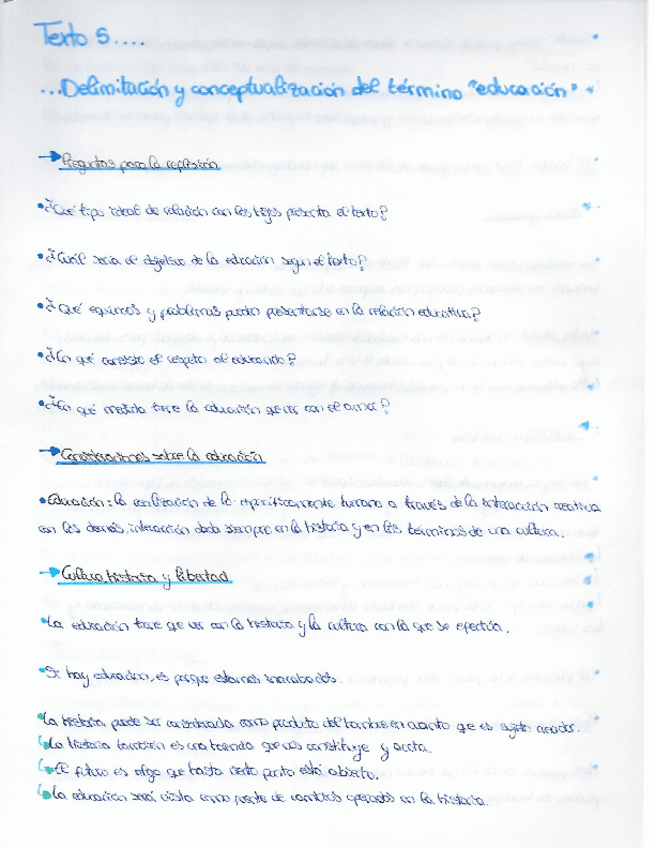 Texto 5....
...Delimitación y conceptualización del término "educación"
Preguntas para la reflexión
• ¿Qué tipo ideal de relación con los hijos presenta el texto?
• ¿Cuál sería el objetivo de la educación según el texto?
• ¿Qué equívocos y problemas pueden presentarse en la relación educativa?
• ¿En qué consiste el respeto al educando?
• ¿En qué medida tiene la educación que ver con el amor?
Consideraciones sobre la educación
• Educación: la realización de lo específicamente humano a través de la interacción creativa
con los demás, interacción dada siempre en la historia y en los términos de una cultura.
Cultura, historia y libertad
• La educación tiene que ver con la historia y la cultura con la que se efectúa.
• Si hay educación, es porque estamos inacabados.
• La historia puede ser considerada como producto del hombre en cuanto que es sujeto creador.
La historia también es una trama que nos constituye y acota.
El futuro es algo que hasta cierto punto está abierto.
La educación será vista como puente de cambios operados en la historia.